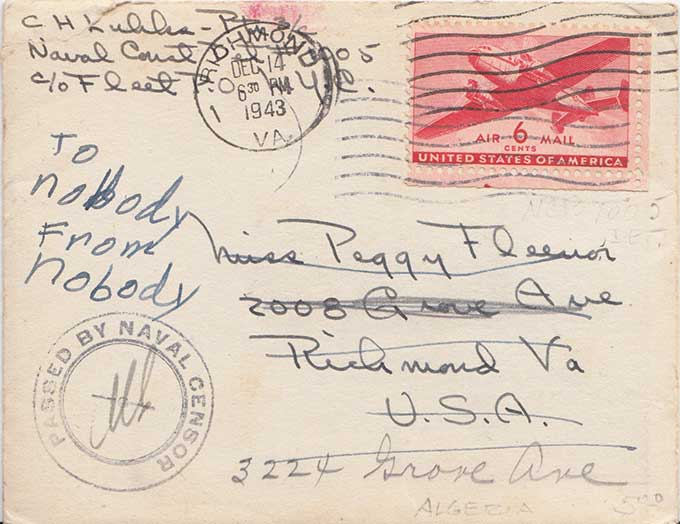 C H
Naval
c/o Fleet P O N.Y.C.
RICHMOND
DEC 14
6 30 PM
1943
1
VA.
AIR 6 MAIL
CENTS
UNITED STATES OF AMERICA
To
nobody
From
nobody
Miss Peggy Fleenor
2008 Grove Ave
Richmond Va
U.S.A.
3224 Grove Ave
PASSED BY NAVAL CENSOR
ALGERIA